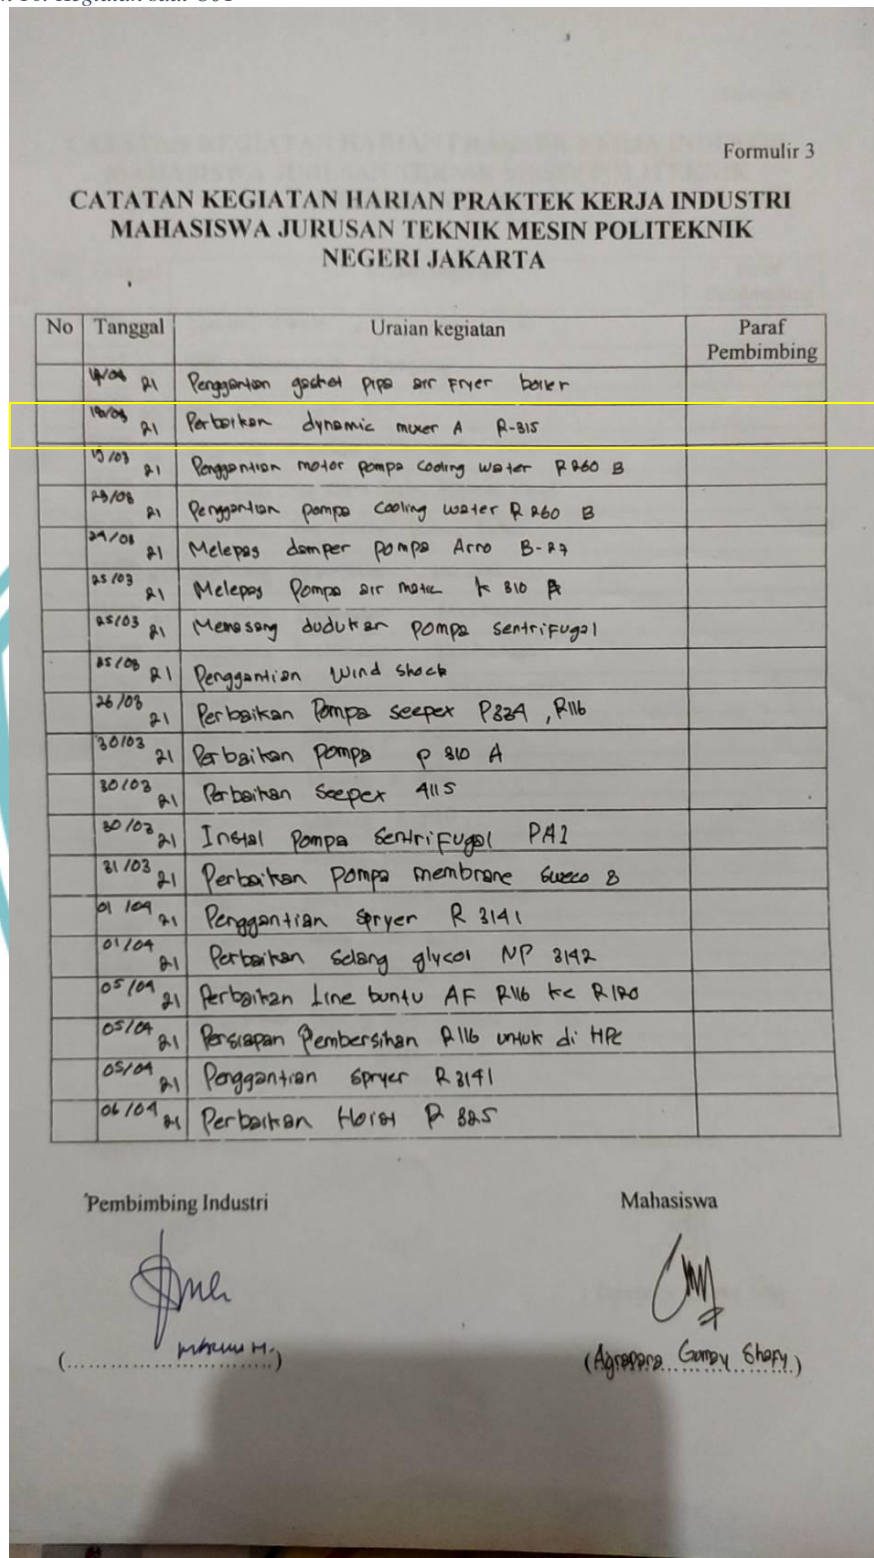 Formulir 3
CATATAN KEGIATAN HARIAN PRAKTEK KERJA INDUSTRI
MAHASISWA JURUSAN TEKNIK MESIN POLITEKNIK
NEGERI JAKARTA
No Tanggal Uraian kegiatan Paraf Pembimbing
21 Penggantian gasket pipa air Fryer boiler
18/03 21 Perbaikan dynamic mixer A R-315
19/03 21 Penggantian motor pompa cooling water R 260 B
23/03 21 Penggantian pompa cooling water R 260 B
24/03 21 Melepas damper pompa Arro B-27
25/03 21 Melepas Pompa air matic k 310
25/03 21 Memasang dudukan pompa sentrifugal
25/03 21 Penggantian wind shock
26/03 21 Perbaikan Pompa seepex P324, R116
30/03 21 Perbaikan pompa P 310 A
30/03 21 Perbaikan Seepex 4115
30/03 21 Instal Pompa Sentrifugal PA1
31/03 21 Perbaikan pompa membrane 8
01/04 21 Penggantian spryer R 3141
01/04 21 Perbaikan Selang glycol NP 3142
05/04 21 Perbaikan Line buntu AF R116 ke R120
05/04 21 Persiapan Pembersihan R116 untuk di
05/04 21 Penggantian spryer R 3141
06/04 21 Perbaikan Hoist R 325
Pembimbing Industri Mahasiswa